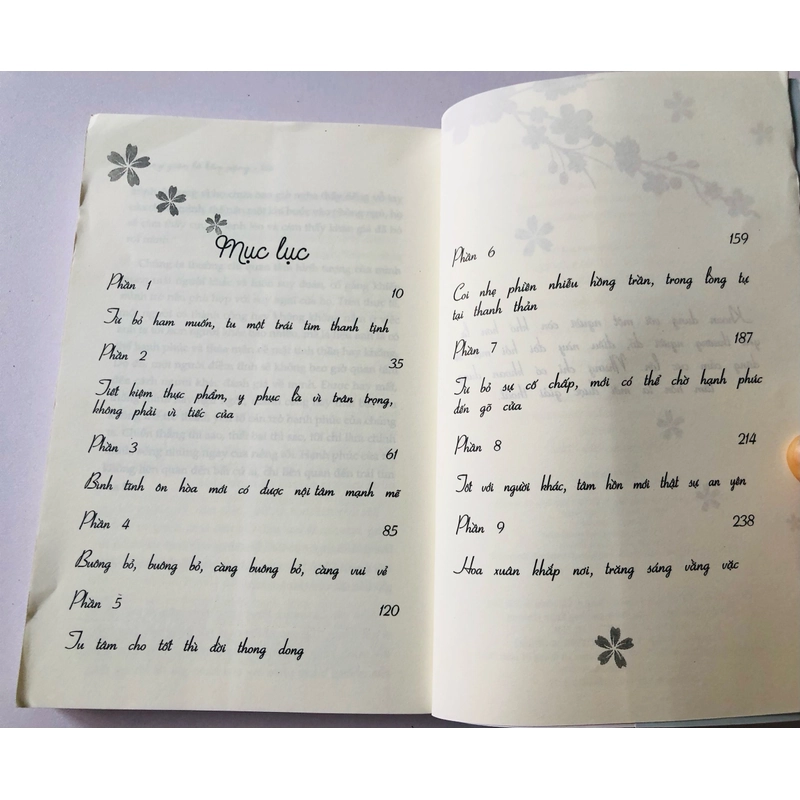 Mục lục
Phần 1
10
Từ bỏ ham muốn, tu một trái tim thanh tịnh
Phần 2
35
Tiết kiệm thực phẩm, y phục là vì trân trọng,
không phải vì tiếc của
Phần 3
61
Bình tĩnh ôn hòa mới có được nội tâm mạnh mẽ
Phần 4
85
Buông bỏ, buông bỏ, càng buông bỏ, càng vui vẻ
Phần 5
120
Tu tâm cho tốt thì đời thong dong
Phần 6
159
Coi nhẹ phiền nhiễu hồng trần, trong lòng tự
tại thanh thản
Phần 7
187
Từ bỏ sự cố chấp, mới có thể chờ hạnh phúc
đến gõ cửa
Phần 8
214
Tốt với người khác, tâm hồn mới thật sự an yên
Phần 9
238
Hoa xuân khắp nơi, trăng sáng vằng vặc